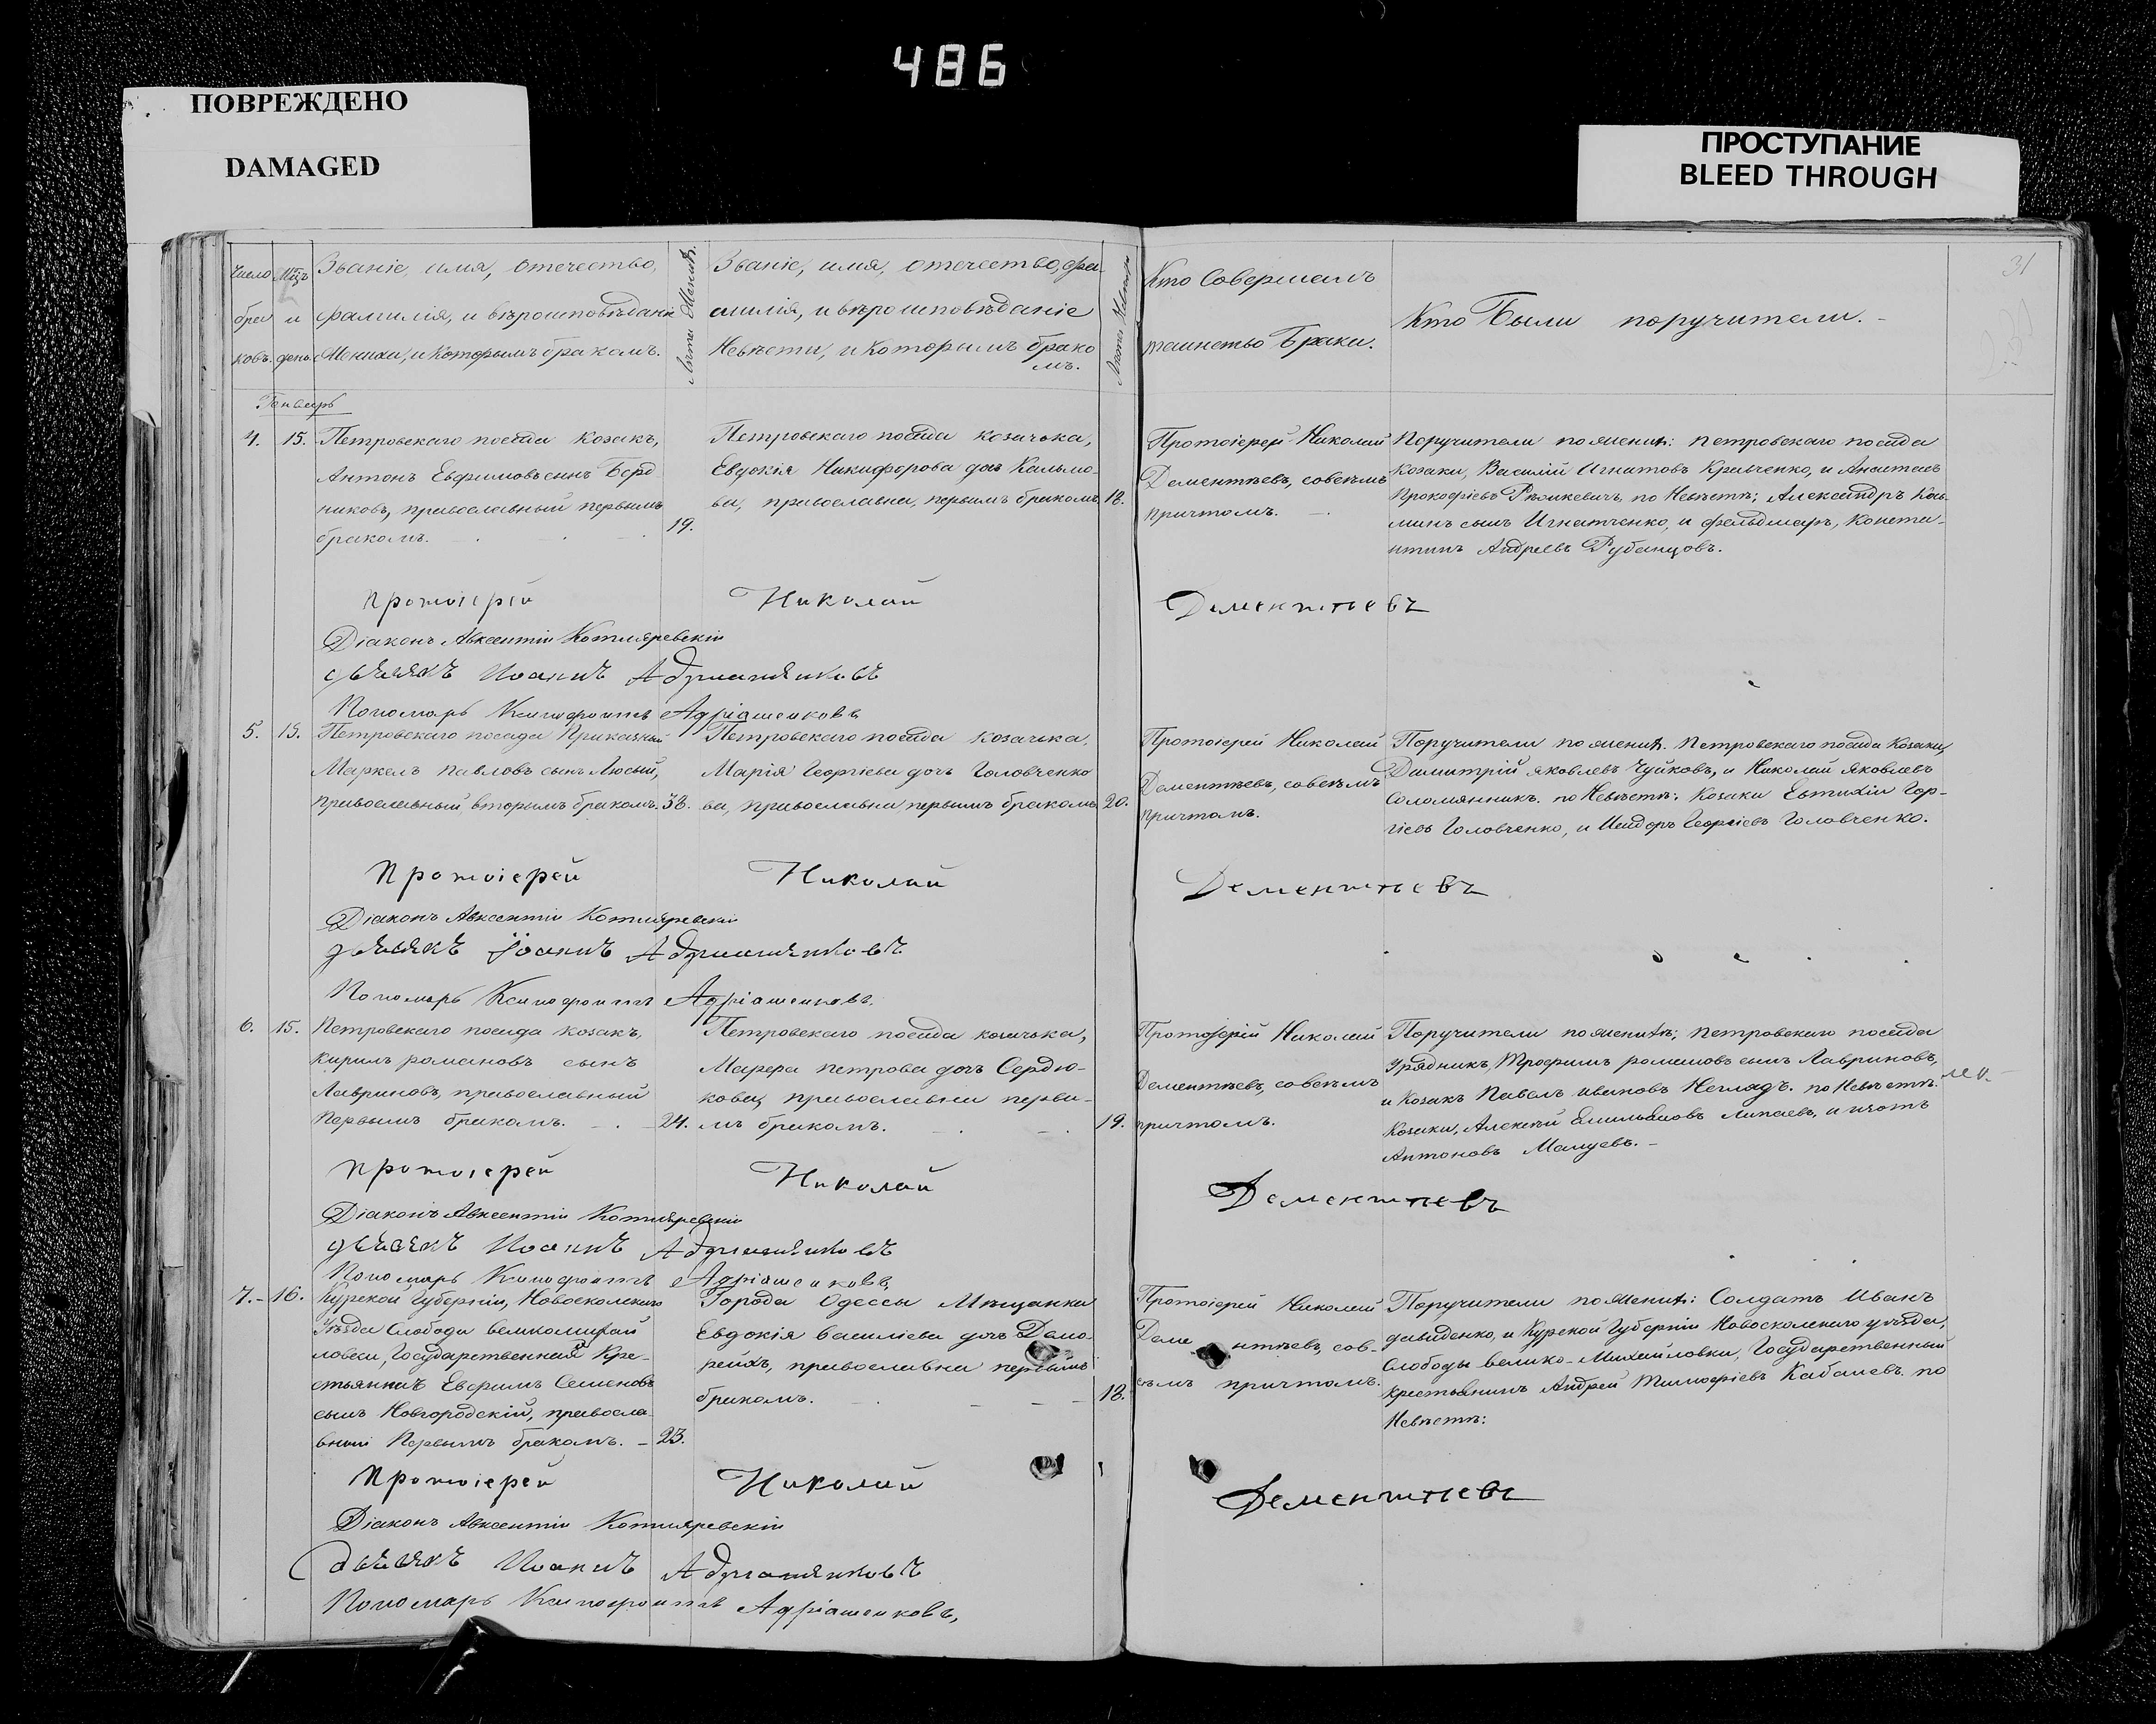 486
ПОВРЕЖДЕНО
DAMAGED
ПРОСТУПАНИЕ
BLEED THROUGH
31
Число браковъ.
Мцъ и день.
Званіе, имя, отечество,
фамилія, и вѣроисповѣданіе
Жениха, и которымъ бракомъ.
Лѣта Жениха.
Званіе, имя, отечество, фа-
милія, и вѣроисповѣданіе
Невѣсты, и которымъ брако
мъ.
Лѣта Невѣсты
Кто Совершалъ
таинство Брака.
Кто Были поручители.
Генварь
4. 15.
Петровскаго посада козакъ,
Антонъ Евфимовъ сынъ Берд
никовъ, православный первымъ
бракомъ.
19.
Петровскаго посада козачька,
Евдокія Никифорова дочь Кальмо-
ва, православна, первымъ бракомъ
18.
Протоіерей Николай
Дементьевъ, совсѣмъ
причтомъ.
Поручители по женихѣ: петровскаго посада
козаки, Василій Игнатовъ Кравченко, и
Прокофіевъ по Невѣстѣ; Александръ
минъ сынъ Игнатченко, и фельдшеръ, Конста-
нтинъ Андреевъ Рубанцовъ.
протоіерей Николай Дементьевъ
Діаконъ Авксентій Котляревскій
дьячекъ Иоаннъ Адриашенковъ
Пономарь Ксинофонтъ Адріашенковъ
5. 15.
Петровскаго посада Приказный
Маркелъ Павловъ сынъ Лысый,
православный вторымъ бракомъ.
38.
Петровскаго посада козачька,
Марія Георгіева дочь Головченко
ва, православна, первымъ бракомъ
20.
Протоіерей Николай
Дементьевъ, совсѣмъ
причтомъ.
Поручители по женихѣ. Петровскаго посада Козаки,
Димитрій Яковлевъ Чуйковъ, и Николай Яковлевъ
Соломянникъ. по Невѣстѣ: Козаки Евтихій Геор-
гіевъ Головченко, и Исидоръ Георгіевъ Головченко.
Протоіерей Николай Дементьевъ
Діаконъ Авксентій Котляревскій
дьячекъ Іоаннъ Адриашенковъ
Пономарь Ксинофонтъ Адріашенковъ.
6. 15.
Петровскаго посада козакъ,
Кирилъ романовъ сынъ
Лавриновъ, православный
Первымъ бракомъ.
24.
Петровскаго посада козачька,
Марфа петрова дочь Сердю-
кова, православна первы-
мъ бракомъ.
19.
Протоіерей Николай
Дементьевъ, совсѣмъ
причтомъ.
Поручители по женихѣ; петровскаго посада
Урядникъ, Трофимъ романовъ сынъ Лавриновъ,
и Козакъ Павелъ ивановъ Негладъ. по Невѣстѣ.
Козаки, Алексѣй Емильяновъ Липаевъ, и
Антоновъ
протоіерей Николай Дементьевъ
Діаконъ Авксентій Котляревскій
дьячекъ Иоаннъ Адриашенковъ
Пономарь Ксинофонтъ Адріашенковъ,
7. 16.
Курской Губерніи, Новоскольскаго
Уѣзда Слободы великомихай
ловки, Государственный Кре-
стьянинъ Евфимъ Семеновъ
сынъ Новгородскій, правосла
вный Первымъ бракомъ.
23.
Города Одессы Мѣщанка
Евдокія василіева дочь
православна первымъ
бракомъ.
18.
Протоіерей Николай
Деме нтьевъ, сов-
сѣмъ причтомъ.
Поручители по женихѣ: Солдатъ Иванъ
давиденко, и Курской Губерніи Новоскольскаго уѣзда,
Слободы велико-Михайловки, Государственный
крестьянинъ Андрей Тимофіевъ Кабаневъ. по
Невѣстѣ:
Протоіерей Николай Дементьевъ
Діаконъ Авксентій Котляревскій
дьячекъ Иоаннъ Адрианенковъ
Пономарь Ксинофонтъ Адріашенковъ,